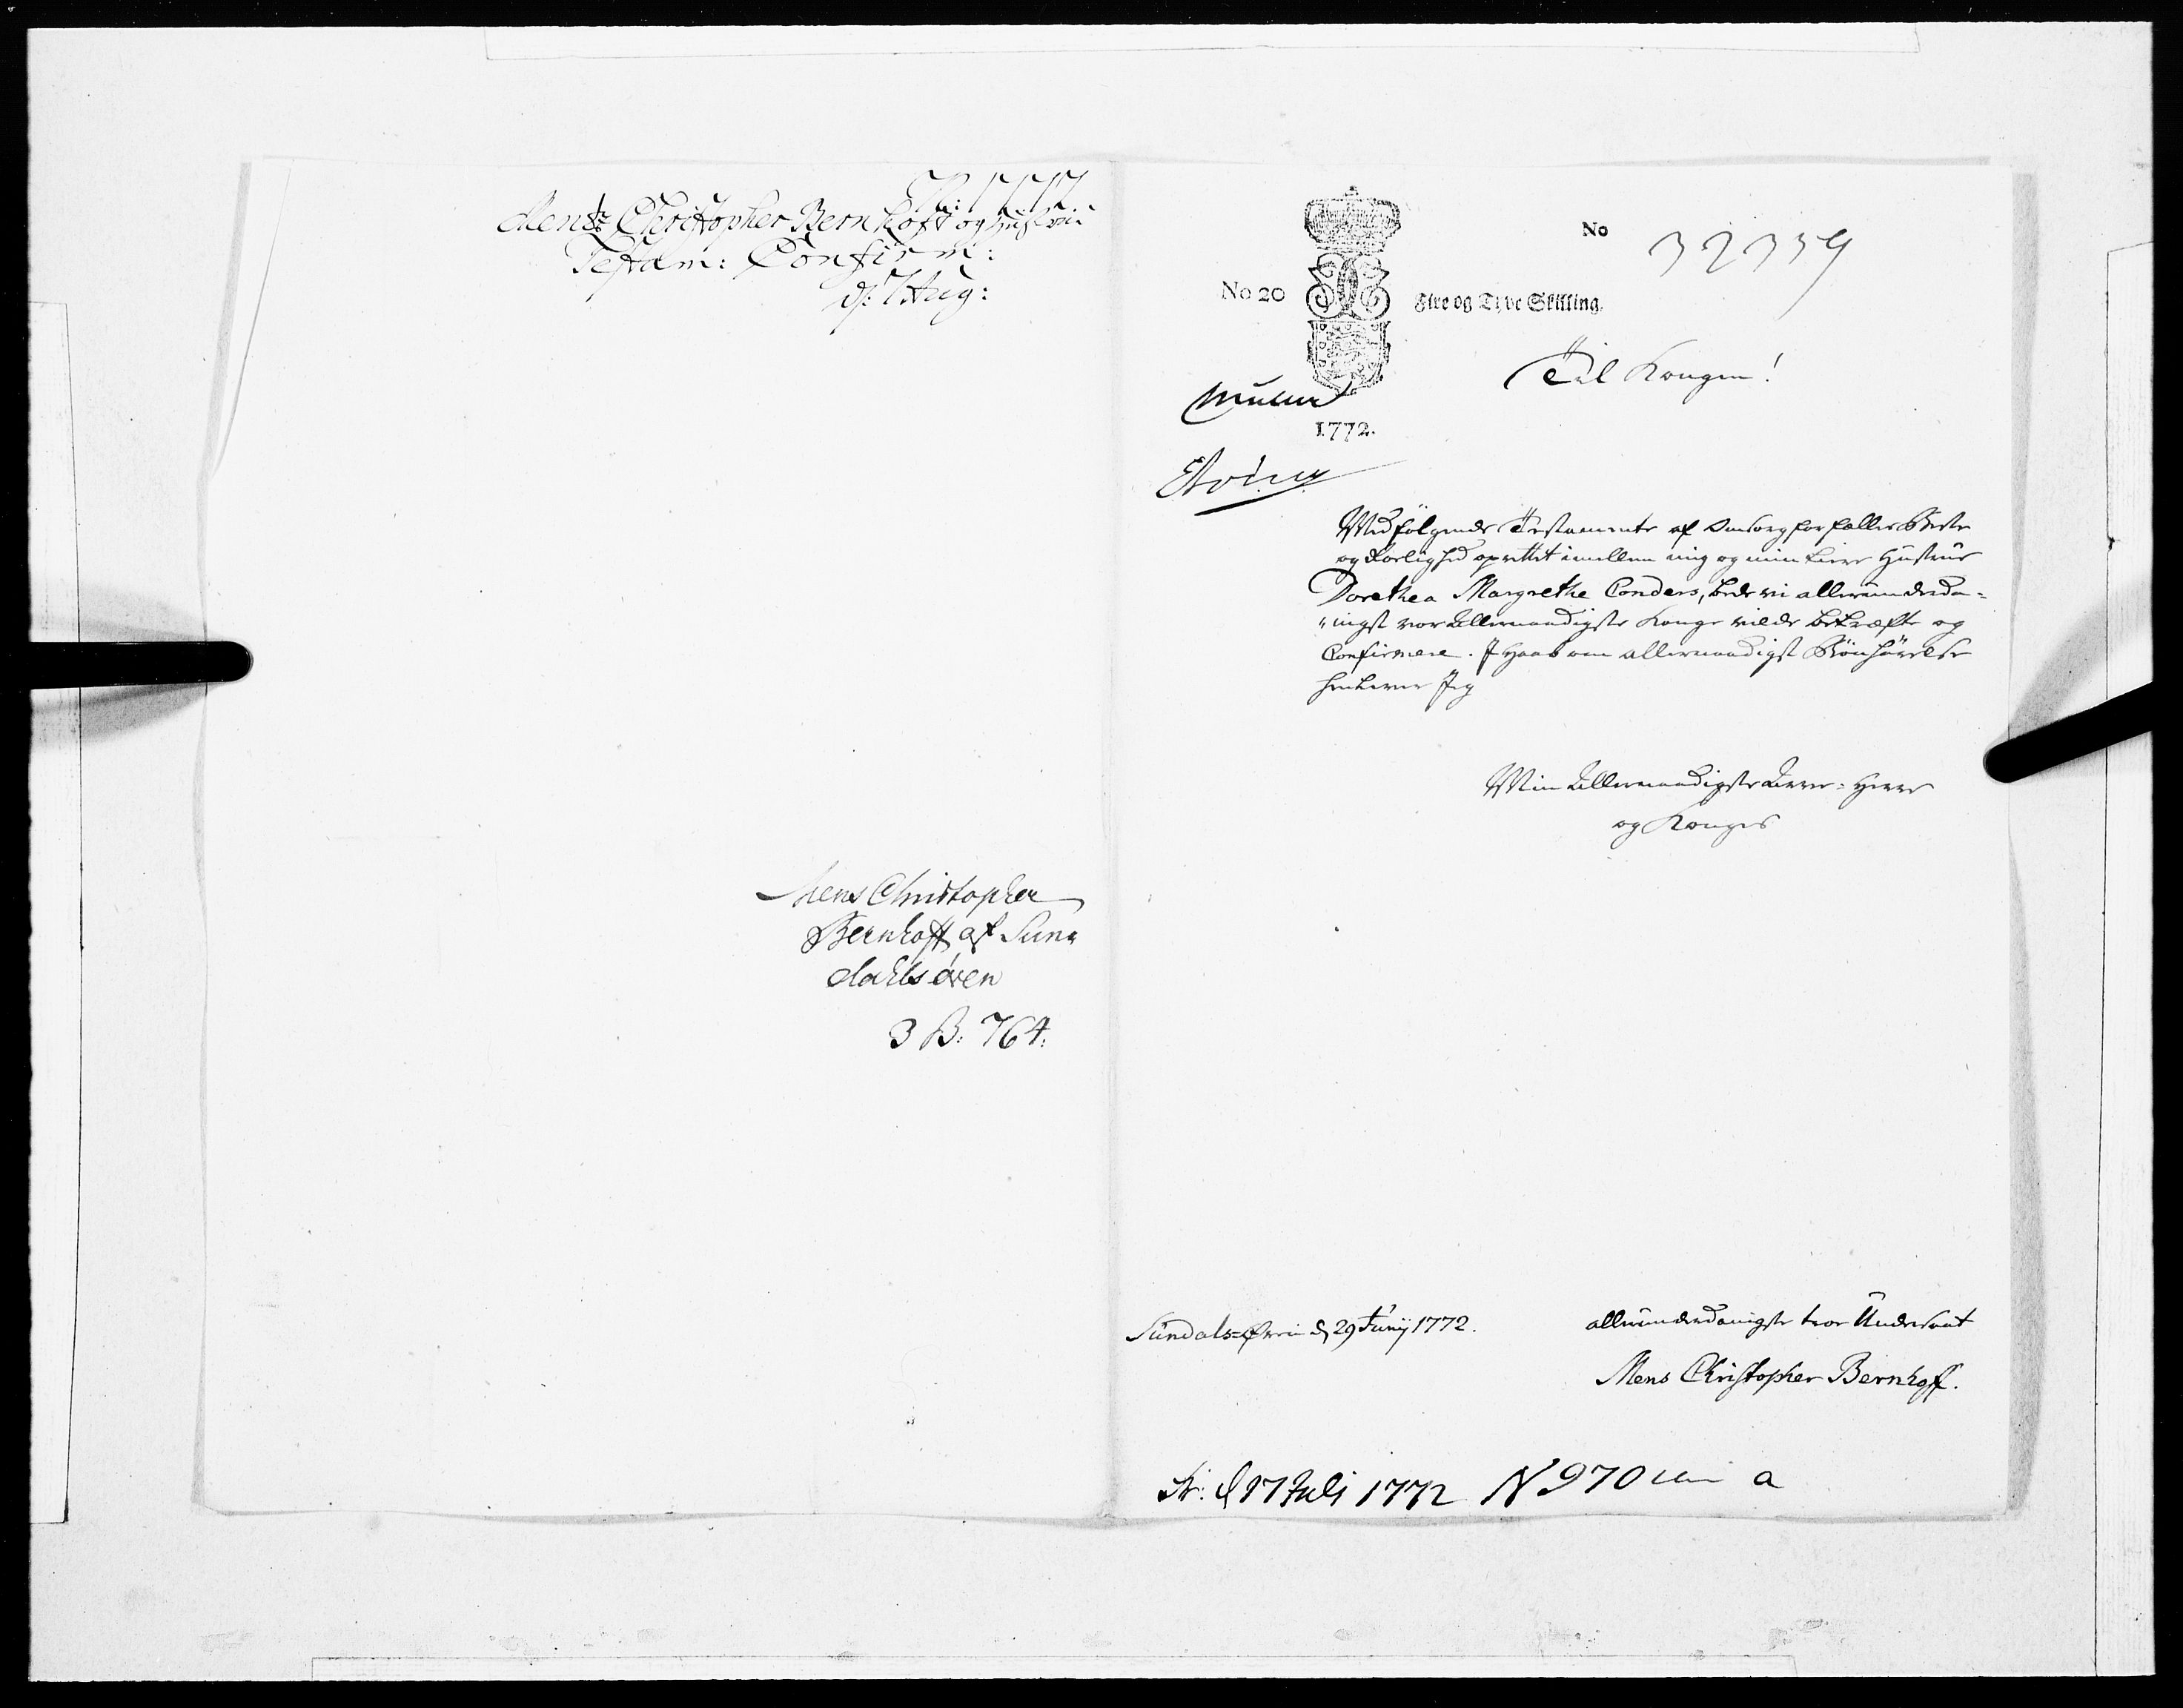 Mens Christopher Bernhoft og Hustrue
Testam: Confirm:
d: 7 Aug:
Mens Christopher
Bernhoft af Sun-
dahlsøren
3 B: 764:
No 32359
No 20 Fire og Tyve Skilling.
Til Kongen!
1772.
Medfølgende Testamente af Omsorg for fælles Beste
og Kierlighed oprettet imellem mig og min kiere Hustrue
Dorethea Margrethe Conders, bede vi allerunderda-
"nigst vor Allernaadigste Konge vilde bekræfte og
Confirmere. I Haab om allernaadigst Bönhörelse
henlever Jeg
Min Allernaadigste Arve-Herre
og Konges
Sundals-Øren d 29 Junij 1772.
allerunderdanigste troe Undersaat
Mens Christopher Bernhoff.
d 17 Juli 1772 N 970 a